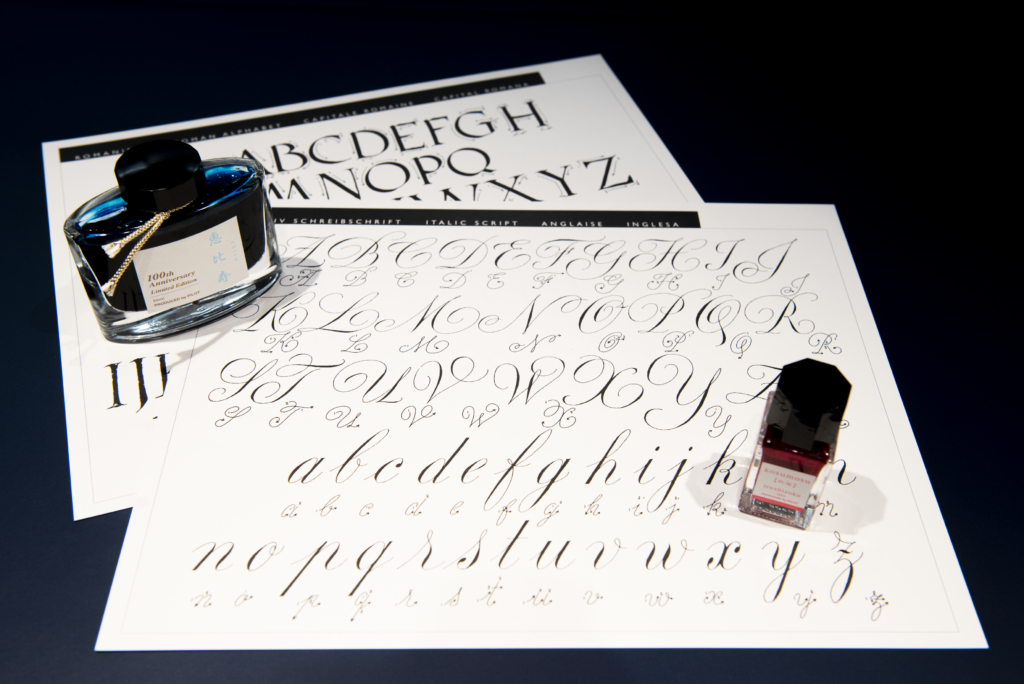 ROMAN ALPHABET CAPITALE ROMAINE CAPITAL ROMANA
ABCDEFGH
MNOPQ
WXYZ
SCHREIBSCHRIFT ITALIC SCRIPT ANGLAISE INGLESA
A B C D E F G H I J
A B C D E F G H I J
K L M N O P Q R
K L M N O P Q R
S T U V W X Y Z
S T U V W X Y
a b c d e f g h i j k
a b c d e f g h i j k m
n o p q r s t u v w x y z
n o p q r s t u v w x y z
恵比寿
100th
Anniversary
Limited Edition
PRODUCED by PILOT